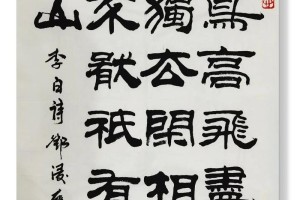 鳥高飛盡
獨去閑相
不猒祇有
山
李白詩